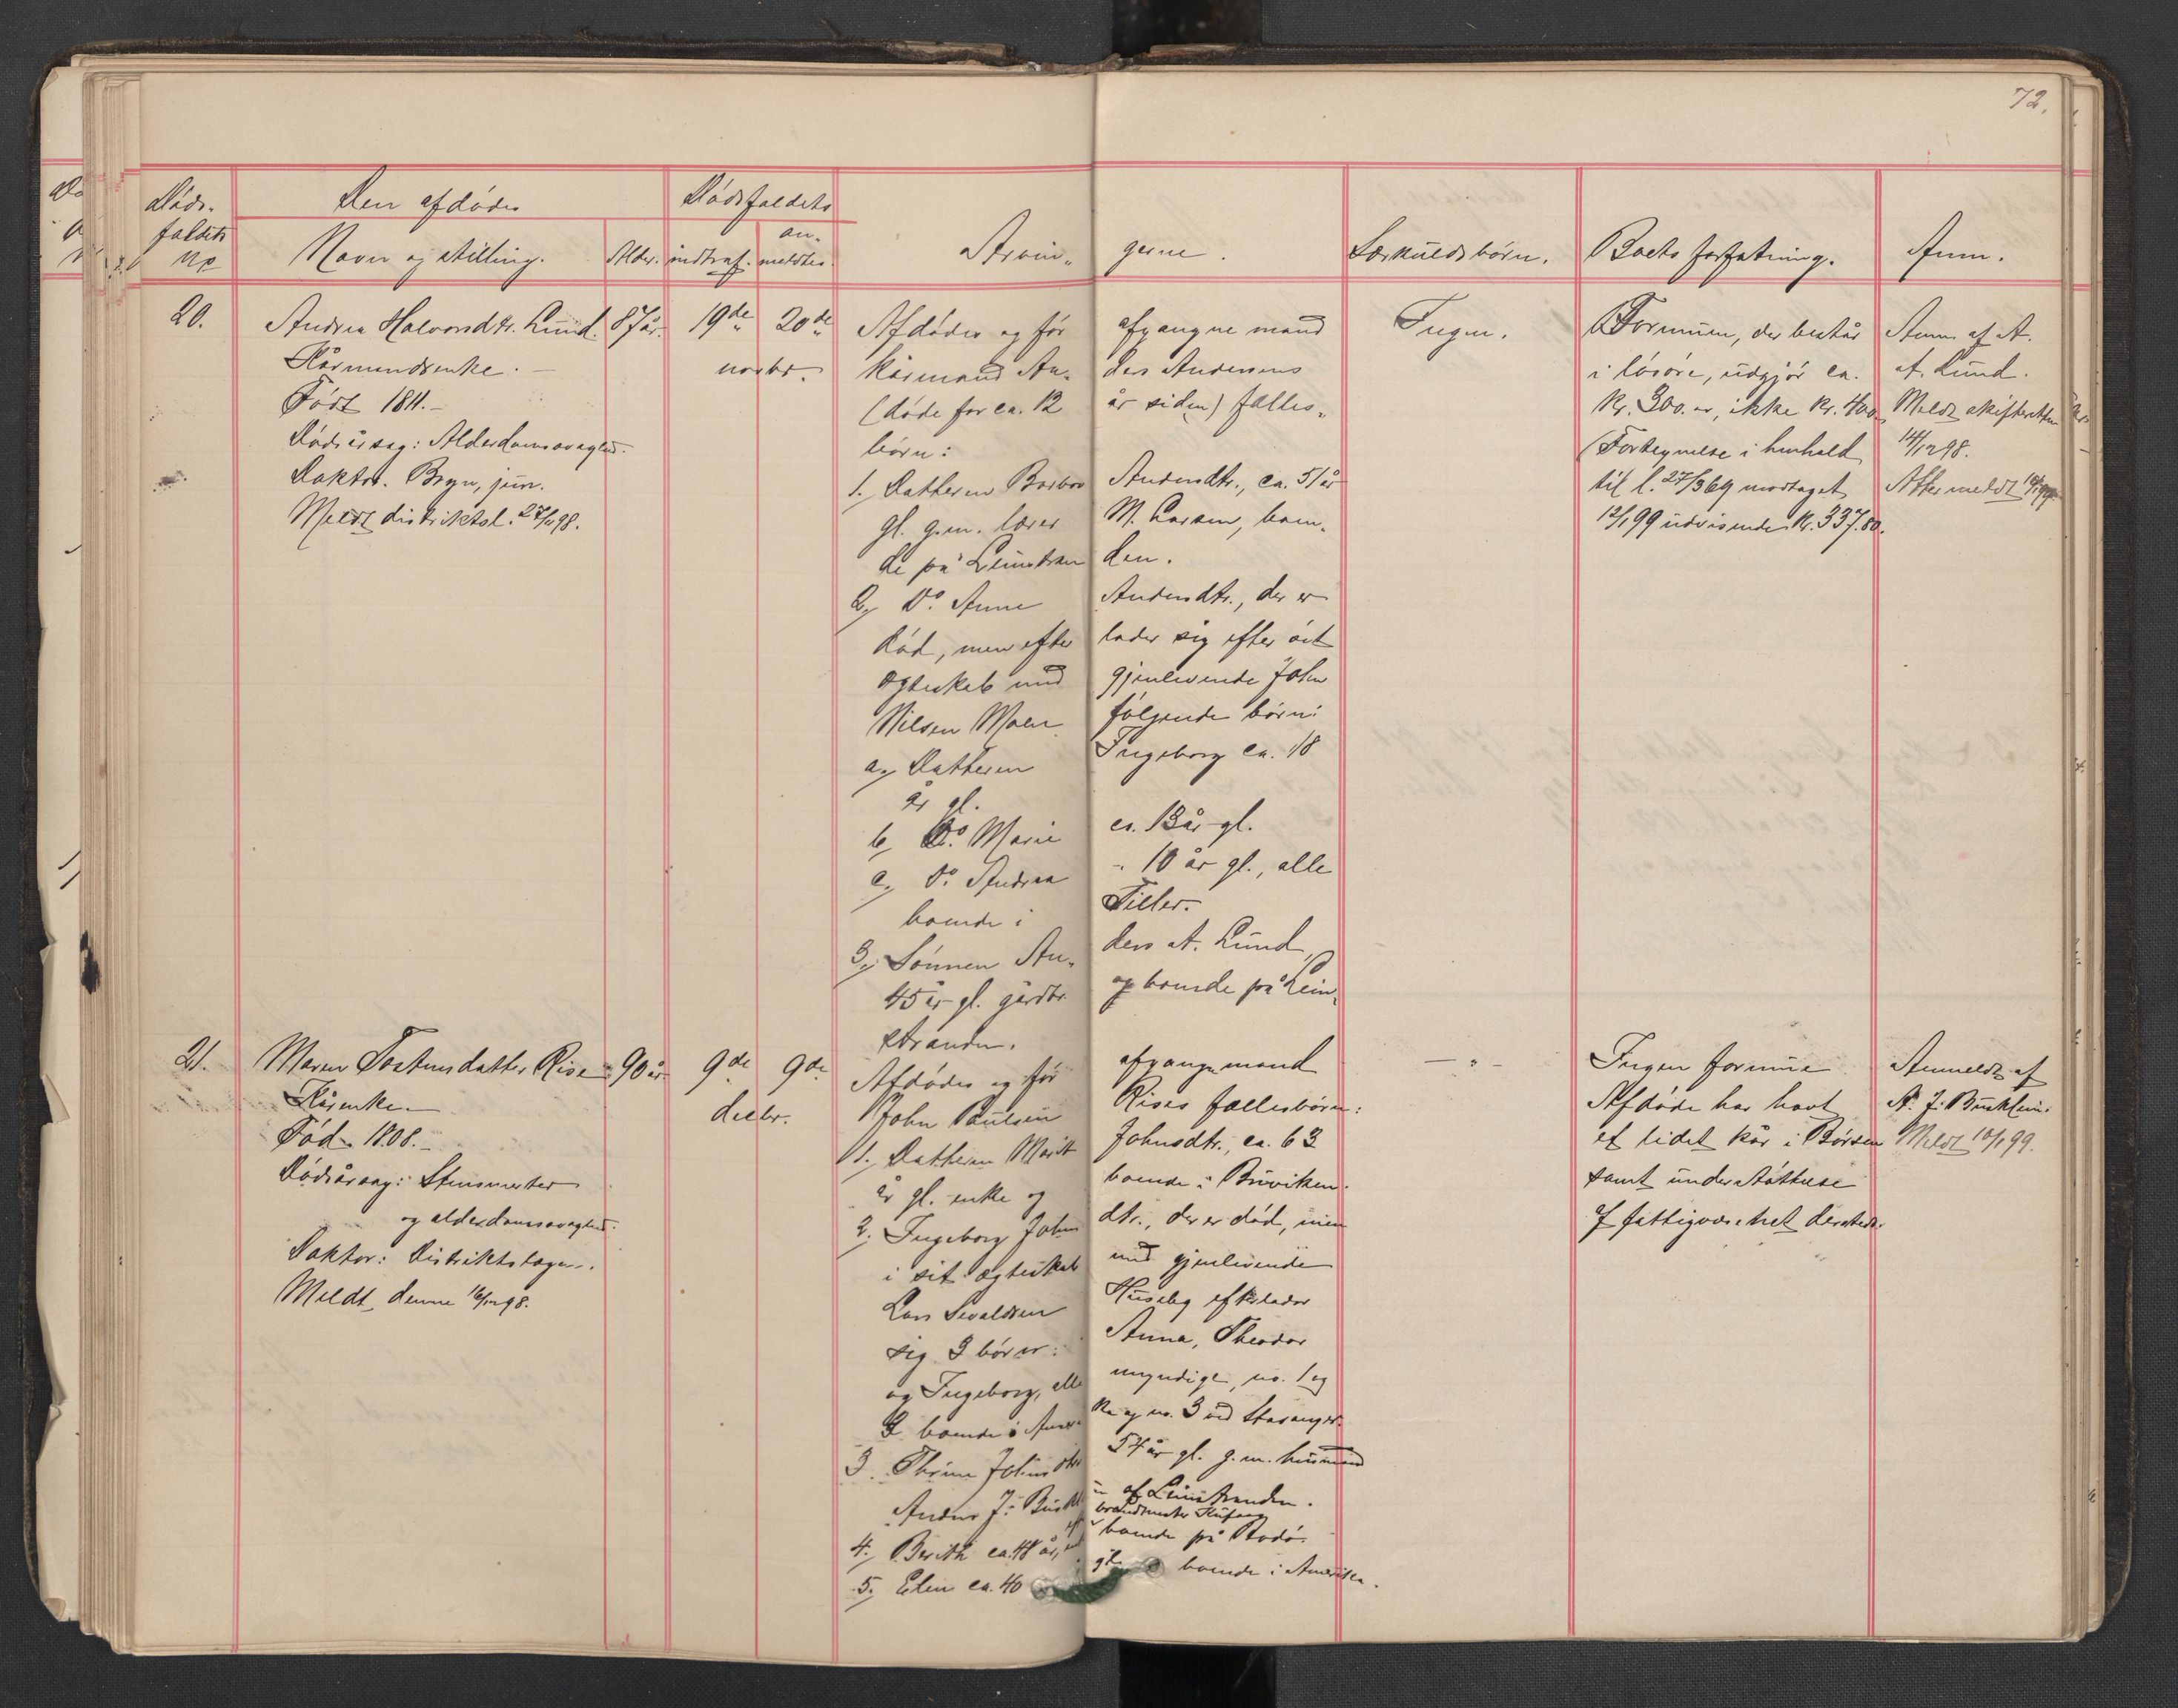 72.
Døds-
faldets
No
Den afdødes
Navn og stilling.
Alder.
Dødsfaldets
indtraf.
an-
meldtes.
Arvin-
gerne.
Særkuldsbørn.
Boets forfatning.
Anm.
20.
Andrea Halvorsdtr. Lund.
Kårmandsenke. -
Født 1811. -
Dødsårsag: Alderdomssvaghed.
Doktor. Bryn, jun.
Meldt distriktsl. 27/11 98.
87 år.
19de
20de
novbr.
Afdødes og før afgangne mand
kårmand Anders Andersens
(døde for ca. 12 år siden) fælles-
børn:
1. Datteren Barbro Andersdtr., ca. 51 år
gl. g.m. lærer M. Larsen, boen-
de på Leinstranden.
2, Do. Anne Andersdtr., der er
død, men efterlader sig efter sit
ægteskab med gjenlevende John
Nilsen Moen følgende børn:
a, Datteren Ingeborg ca. 18
år gl.
b, Do. Marie ca. 13 år gl.
c, Do. Andrea " 10 år gl., alle
boende i Tiller.
3, Sønnen Anders A. Lund,
45 år gl. gårdbr. og boende på Lein-
stranden.
Ingen.
Formuen, der består
i løsøre, udgjør ca.
Kr. 300. er, ikke Kr. 400.
(Fortegnelse i henhold
til l. 27/3 69 modtaget
12/1 99 udvisende Kr. 337.80.
Anm. af A.
A. Lund.
Meldt skifteretten
14/12 98.
Atter meldt
21.
Maren Tostensdatter Rise
Kårenke. -
Fød. 1808. -
Dødsårsag:
og alderdomssvaghed.
Doktor: Distriktslægen.
Meldt denne 16/12 98.
90 år.
9de
9de
decbr.
Afdødes og før afgangne mand
John Paulsen Rises fællesbørn:
1. Datteren Marit Johnsdtr., ca. 63
år gl. enke og boende i Buviken.
2. Ingeborg Johnsdtr., der er død, men
i sit ægteskab med gjenlevende
Lars Sevaldsen Huseby efterlader
sig 3 børn: Anna, Theodor
og Ingeborg, alle myndige, no. 1 og
2 boende i Amerika og no. 3 ved Stavanger.
3. Johnsdtr. 54 år gl. g.m. husmand
Anders J. af Leinstranden.
4, Berith ca. 48 år, brandmester boende på Bodø.
5, Elen ca. 40 boende i Amerika.
- " -
Ingen formue.
Afdøde har havt
et lidet kår i Børsen
samt understøttelse
af fattigvæsenet dersteds.
Anmeldt af
A. J.
Meldt 10/1 99.